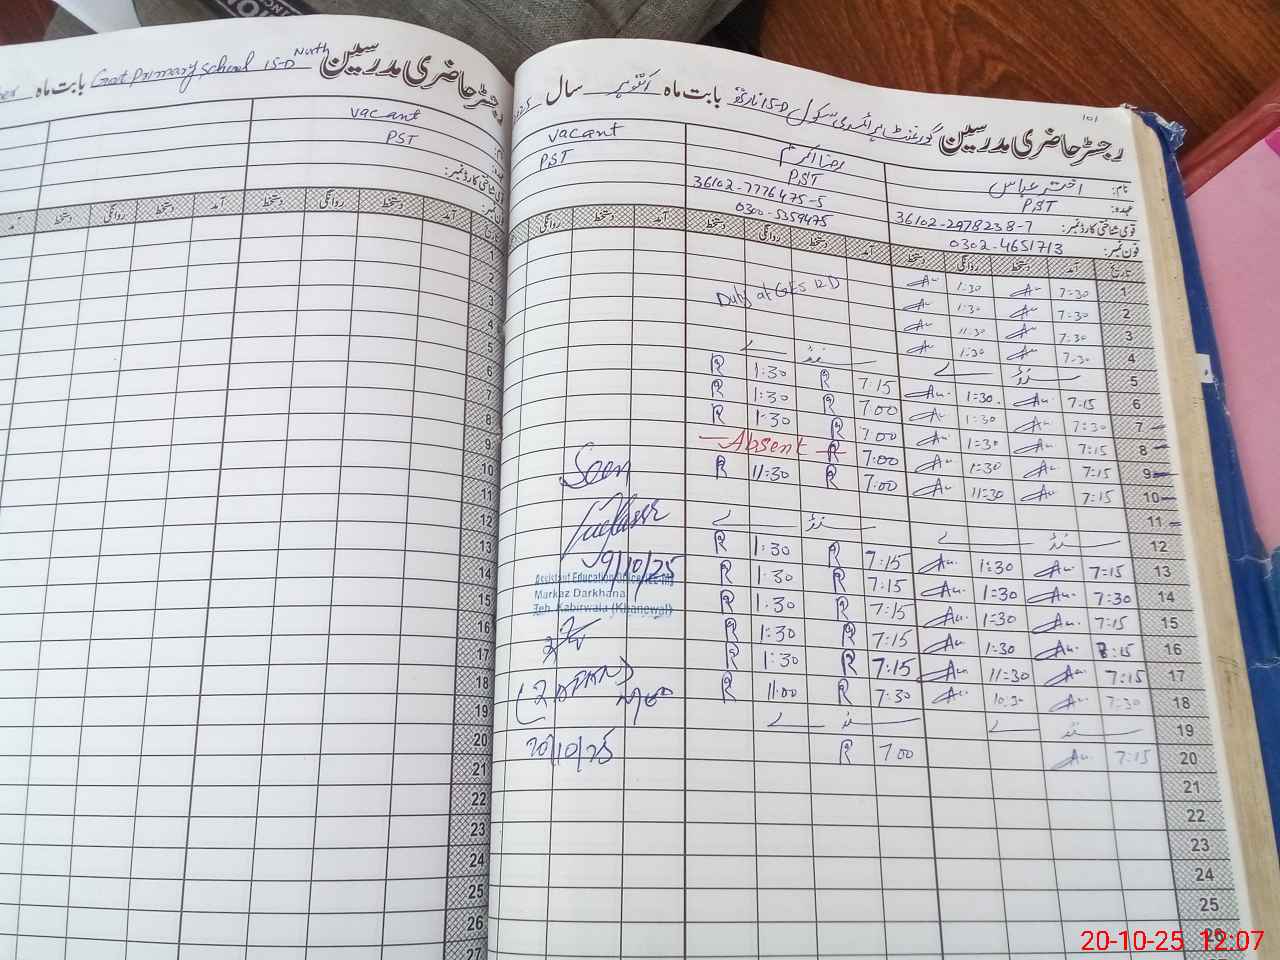 رجسٹر حاضری مدرسین
بابت ماہ
Govt Primary School 15-D North
vacant
PST
آمد دستخط روانگی دستخط
1
2
3
4
5
6
7
8
9
10
11
12
13
14
15
16
17
18
19
20
21
22
23
24
25
26
27
101
رجسٹر حاضری مدرسین گورنمنٹ پرائمری سکول 15-D نارتھ بابت ماہ اکتوبر سال
نام: اختر عباس
عہدہ: PST
قومی شناختی کارڈ نمبر: 36102-2978238-7
فون نمبر: 0302-4651713
رضا اکرم
PST
36102-7776475-5
0300-5359475
vacant
PST
تاریخ آمد دستخط روانگی دستخط آمد دستخط روانگی دستخط آمد دستخط روانگی
1 7:30 Au 1:30 Au
Duty at GES 12 D
2 7:30 Au 1:30 Au
3 7:30 Au 11:30 Au
4 7:30 Au 1:30 Au
5 سنڈے سنڈے
6 7:15 Au 1:30 Au 7:15 R 1:30 R
7 7:30 Au 1:30 Au 7:00 R 1:30 R
8 7:15 Au 1:30 Au 7:00 R 1:30 R
9 7:15 Au 1:30 Au 7:00 R Absent
10 7:15 Au 11:30 Au 7:00 R 11:30 R
11
12 سنڈے سنڈے
13 7:15 Au 1:30 Au 7:15 R 1:30 R
14 7:30 Au 1:30 Au 7:15 R 1:30 R
15 7:15 Au 1:30 Au 7:15 R 1:30 R
16 7:15 Au 1:30 Au 7:15 R 1:30 R
17 7:15 Au 11:30 Au 7:15 R 1:30 R
18 7:30 Au 10:30 Au 7:30 R 11:00 R
19 سنڈے سنڈے
20 7:15 Au 7:00 R
21
22
23
24
25
26
Seen
9/10/25
Assistant Education Officer (M)
Markaz Darkhana
Teh. Kabirwala (Khanewal)
20/10/25
20-10-25 12:07